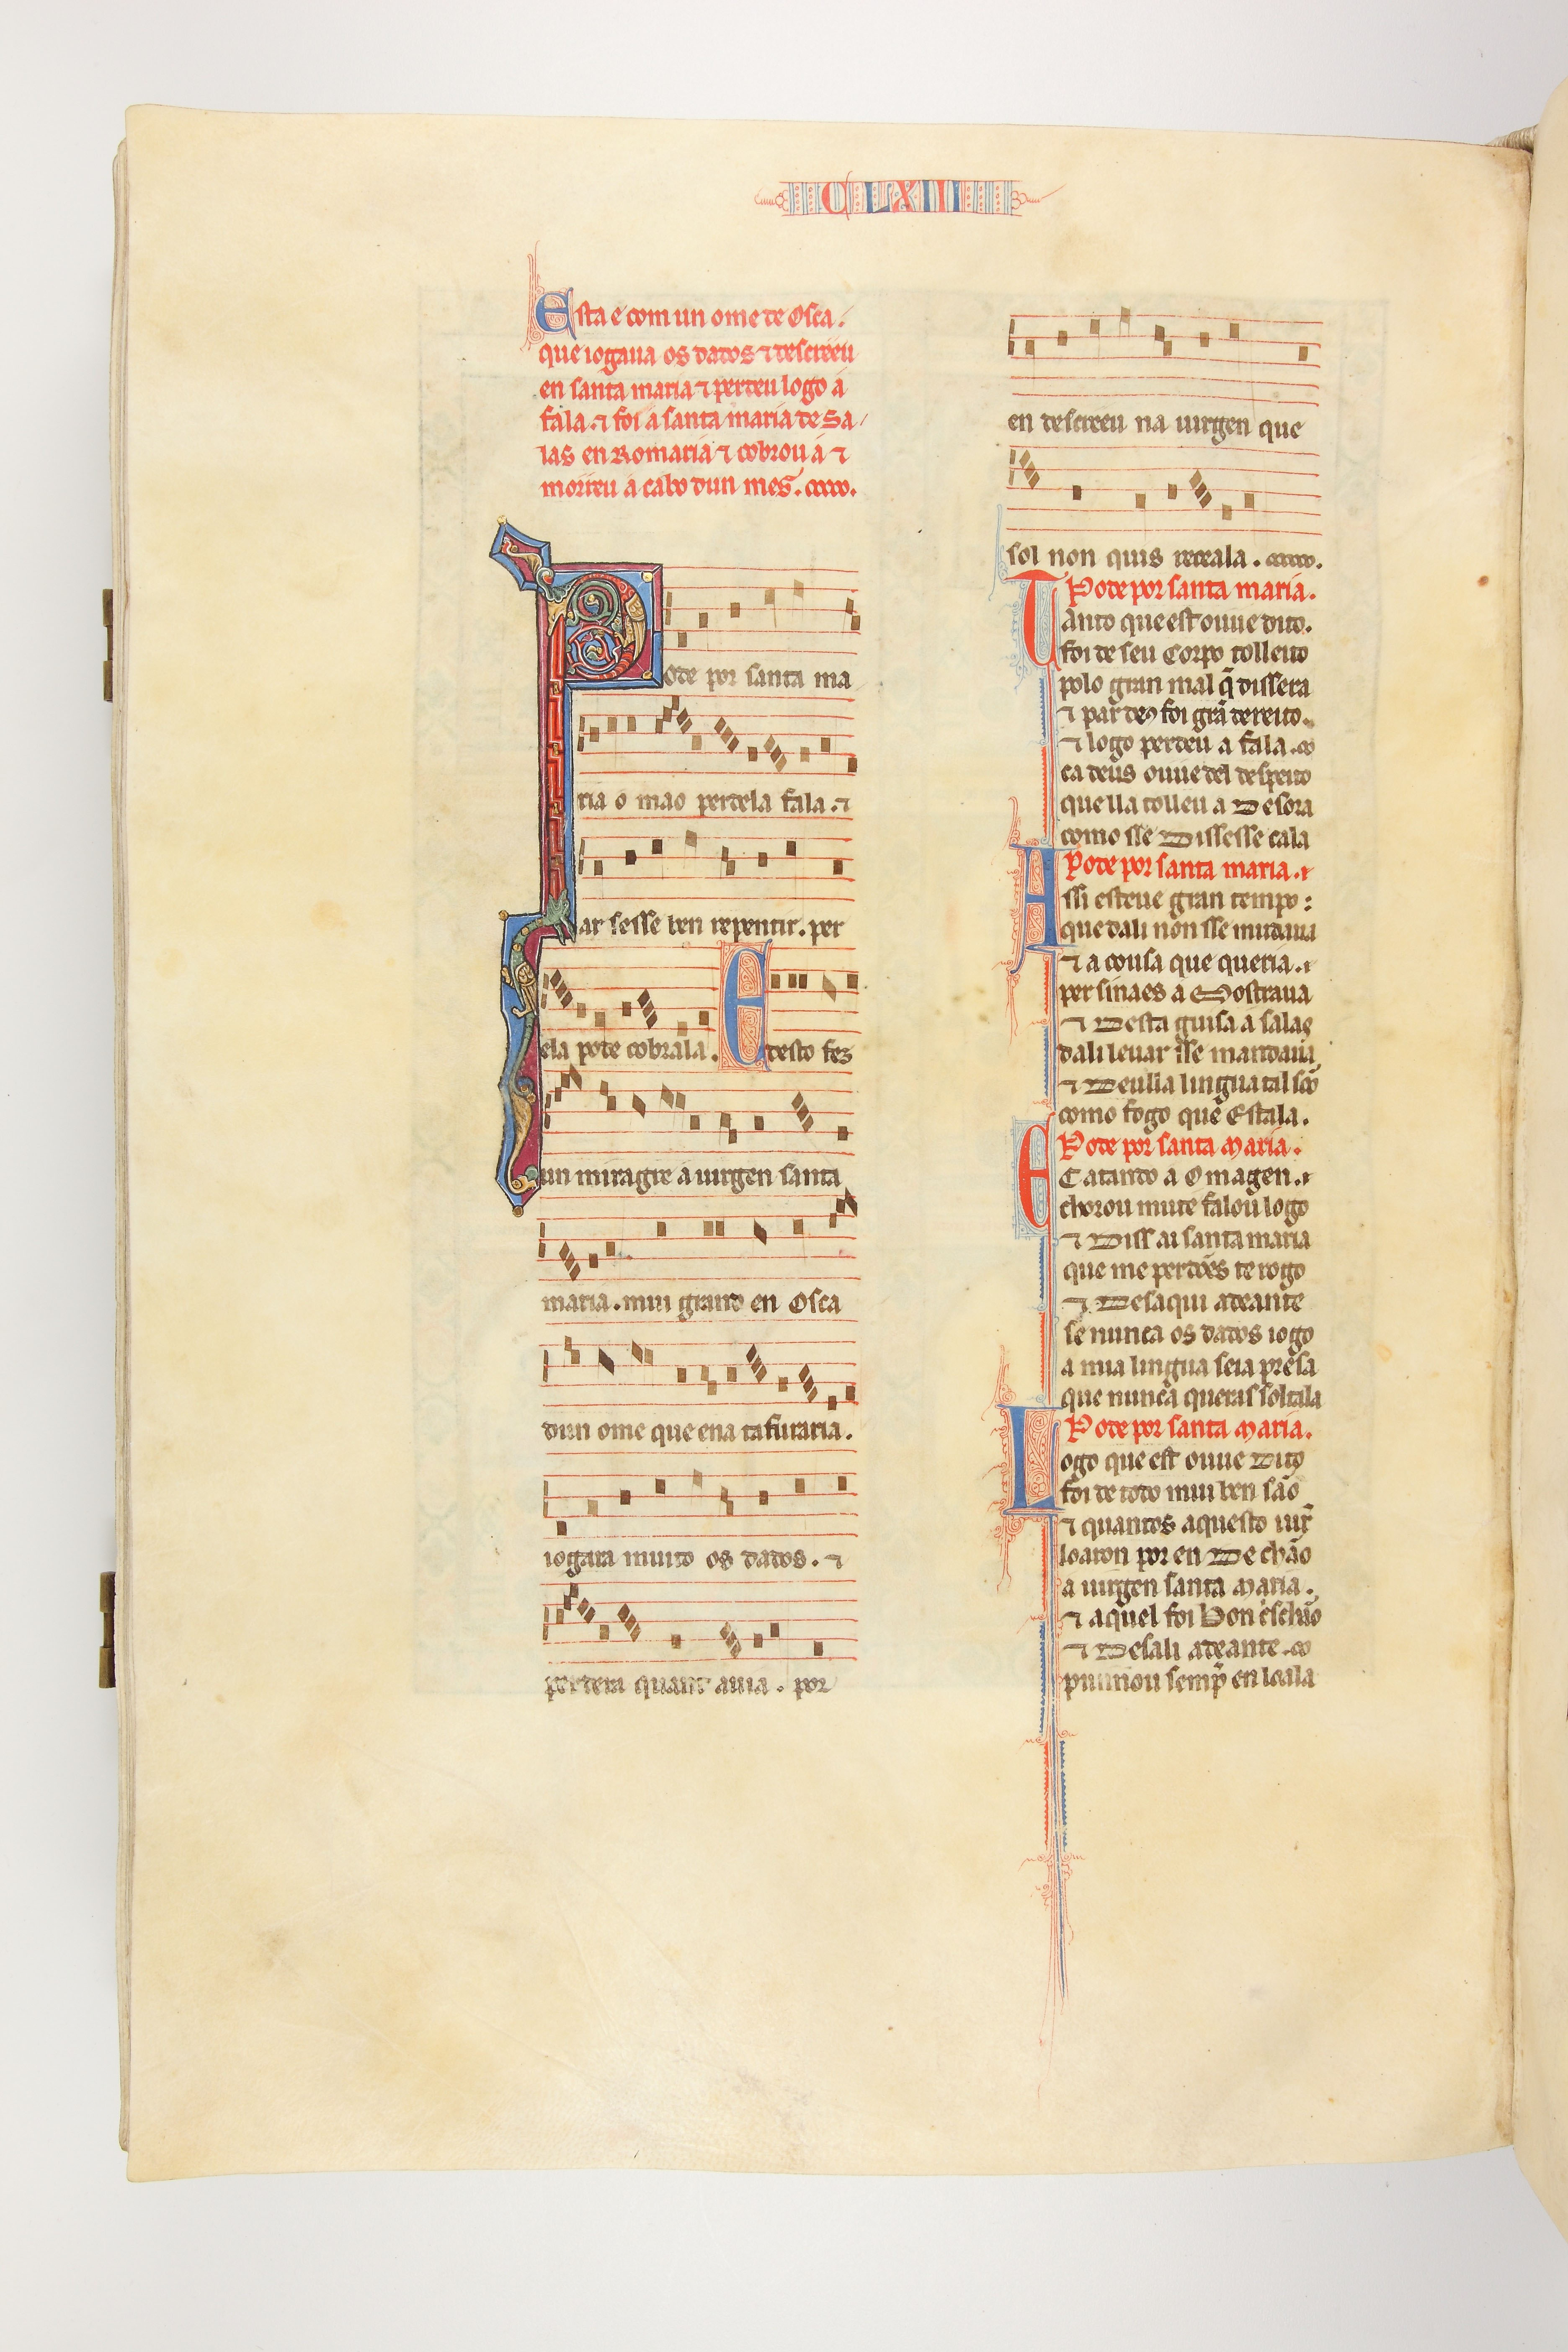 CLXIII
Esta é com un ome de Osca.
que iogaua os dados ⁊ descreeu
en santa maria ⁊ perdeu logo á
fala. ⁊ foi á santa maria de Sa
las en Romaria ⁊ cobrou á ⁊
morreu á cabo dun mes.
Pode por santa ma
ria o mao perdela fala. ⁊
ar sesse ben repentir. per
ela pode cobrala. E desto fez
un miragre a uirgen santa
maria. mui grand en Osca
dun ome que ena tafuraria.
iogara muito os dados. ⁊
perdera quant auia. por
en descreeu na uirgen que
sol non quis receala.
Pode por santa maria.
Tanto que est ouue dito.
foi de seu Corpo tolleito
polo gran mal q̃ dissera
⁊ par de9 foi grã dereito.
⁊ logo perdeu a fala.
ca deus ouue del despeito
que lla tolleu a Desora
como sse Dissesse cala
Pode por santa maria.
Assi esteue gran tempo:
que dali non sse mudaua
⁊ a cousa que queria.
per sinaes a Mostraua
⁊ Desta guisa a salas
dali leuar sse mandaua
⁊ Deulla lingua tal sõ
como fogo que Estala.
Pode por santa Maria.
E Catando a Omagen.
chorou muit e falou logo
⁊ Diss ai santa maria
que me perdões te rogo
⁊ Desaqui adeante
se nunca os dados iogo
a mia lingua seia presa
que nunca queras soltala
Pode por santa Maria.
Logo que est ouue Dito
foi de todo mui ben são
⁊ quantos aquesto uir̃
loaron por en De chão
a uirgen santa Maria.
⁊ aquel foi bon crischão
⁊ Desali adeante
punnou semp̃ en loala